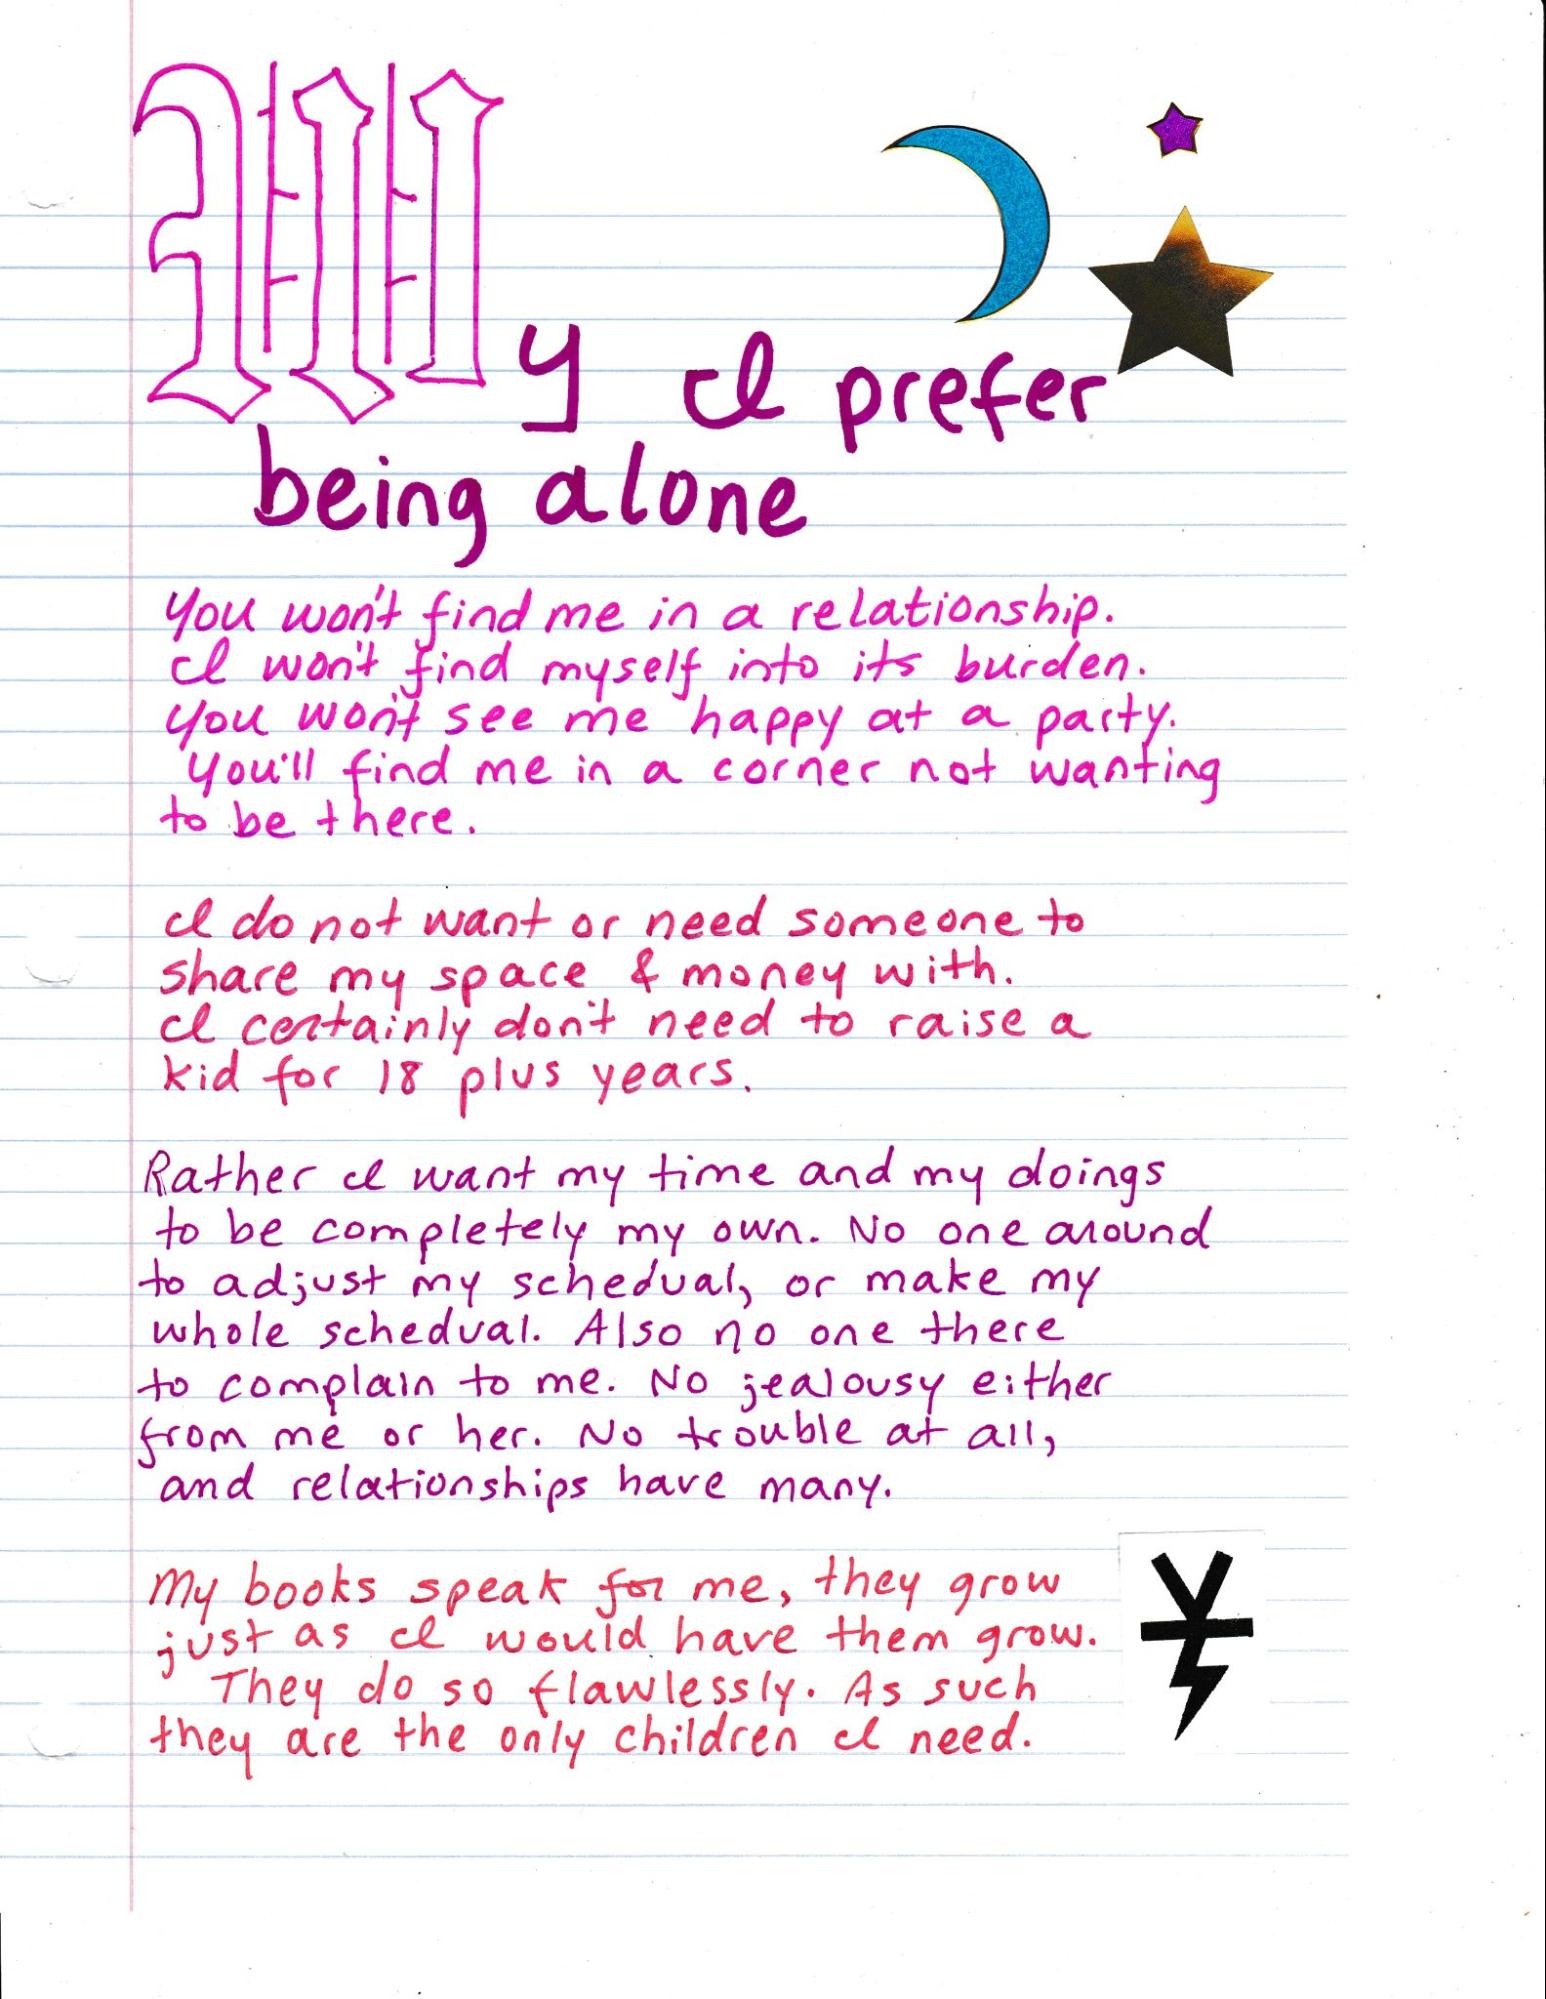 My I prefer
being alone
You won't find me in a relationship.
I won't find myself into its burden.
You won't see me happy at a party.
You'll find me in a corner not wanting
to be there.
I do not want or need someone to
share my space & money with.
I certainly don't need to raise a
kid for 18 plus years.
Rather I want my time and my doings
to be completely my own. No one around
to adjust my schedual, or make my
whole schedual. Also no one there
to complain to me. No jealousy either
from me or her. No trouble at all,
and relationships have many.
My books speak for me, they grow
just as I would have them grow.
They do so flawlessly. As such
they are the only children I need.